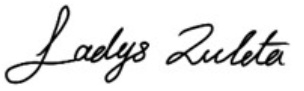 Ladys Zuleta